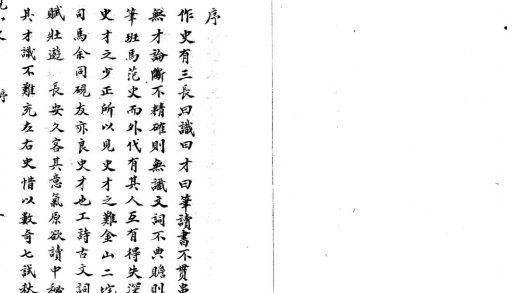 序
作史有三長曰識曰才曰筆讀書不貫串
無才論斷不精確則無識文詞不典贍則
筆班馬范史而外代有其人互有得失深
史才之少正所以見史才之難金山二垞
司馬余同硯友亦良史才也工詩古文詞
賦壯遊長安久客其意氣原欲讀中秘
具才識不難充左右史惜以數奇七試秋
序